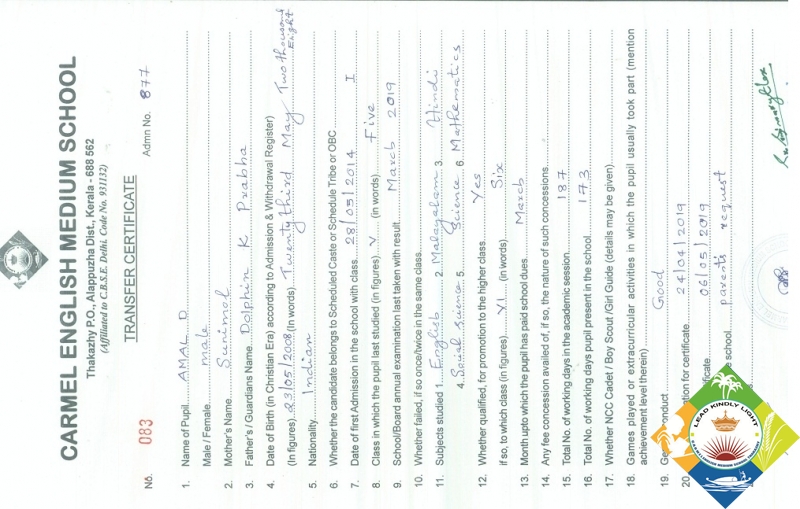 CARMEL ENGLISH MEDIUM SCHOOL
Thakazhy P.O., Alappuzha Dist., Kerala - 688 562
(Affiliated to C.B.S.E. Delhi Code No. 931132)
TRANSFER CERTIFICATE
No. 083 Admn No. 877
1. Name of Pupil AMAL D
Male / Female male
2. Mother's Name Sunimol
3. Father's / Guardians Name Dolphin K Prabha
4. Date of Birth (in Christian Era) according to Admission & Withdrawal Register)
(In figures) 23/05/2008 (In words) Twenty third May Two thousand Eight
5. Nationality Indian
6. Whether the candidate belongs to Scheduled Caste or Schedule Tribe or OBC
7. Date of first Admission in the school with class 28/05/2014 I
8. Class in which the pupil last studied (in figures) V (in words) Five
9. School/Board annual examination last taken with result March 2019
10. Whether failed, if so once/twice in the same class
11. Subjects studied 1 English 2. Malayalam 3 Hindi
4. Social Science 5. Science 6. Mathematics
12. Whether qualified, for promotion to the higher class Yes
if so, to which class (in figures) VI (in words) Six
13. Month upto which the pupil has paid school dues March
14. Any fee concession availed of, if so, the nature of such concessions
15. Total No. of working days in the academic session 187
16. Total No. of working days pupil present in the school 173
17. Whether NCC Cadet / Boy Scout /Girl Guide (details may be given)
18. Games played or extracurricular activities in which the pupil usually took part (mention
achievement level therein)
19. Ge onduct Good
20 tion for certificate 24/04/2019
ificate 06/05/2019
e school parents request
LEAD KINDLY LIGHT